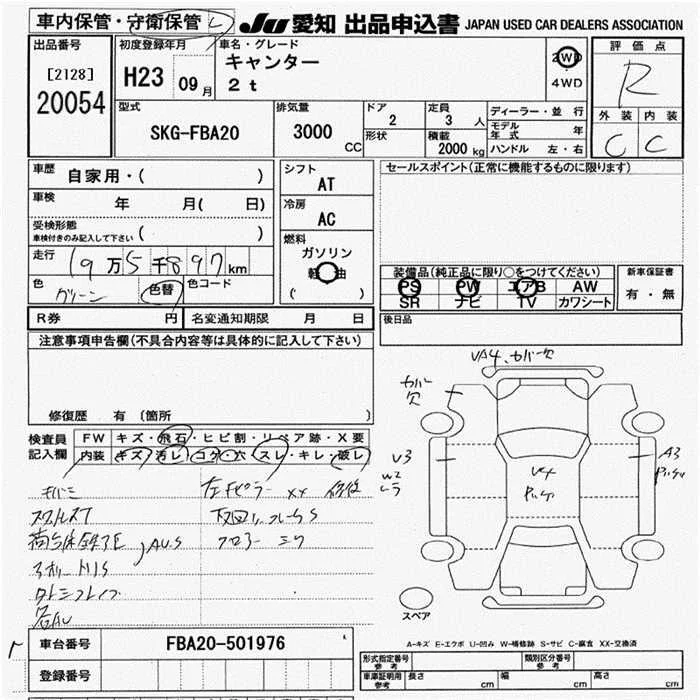 車内保管・守衛保管 JU 愛知 出品申込書 JAPAN USED CAR DEALERS ASSOCIATION
出品番号
[2128]
20054
初度登録年月
H23 09月
車名・グレード
キャンター
2t
2WD
・
4WD
評価点
R
外装 内装
C C
型式
SKG-FBA20
排気量
3000 CC
ドア
2
形状
定員
3 人
積載
2000 kg
ディーラー・並行
モデル年式 年
ハンドル 左・右
車歴 自家用・( )
車検 年 月( 日)
受検形態
車検付きのみ記入して下さい ( )
走行 19万5千897km
色 グリーン 色替 色コード
シフト
AT
冷房
AC
燃料
ガソリン
軽油
( )
セールスポイント(正常に機能するものに限ります)
装備品(純正品に限り○をつけてください)
PS PW エアB AW
SR ナビ TV カワシート
新車保証書
有・無
R券 円 名変通知期限 月 日
後日品
注意事項申告欄(不具合内容等は具体的に記入して下さい)
修復歴 有 (箇所 )
検査員記入欄
FW キズ・飛石・ヒビ割・リペア跡・X要
内装 キズ・汚レ・コゲ・穴・スレ・キレ・破レ
左Fピラー XX 修復
VA4、カバー欠
カバー欠
V3
W2
A3
V4
スペア
A-キズ E-エクボ U-凹み W-補修跡 S-サビ C-腐食 XX-交換済
車台番号 FBA20-501976
登録番号
形式指定番号 参考
類別区分番号 参考
車庫証明用 参考 長さ cm 幅 cm 高さ cm